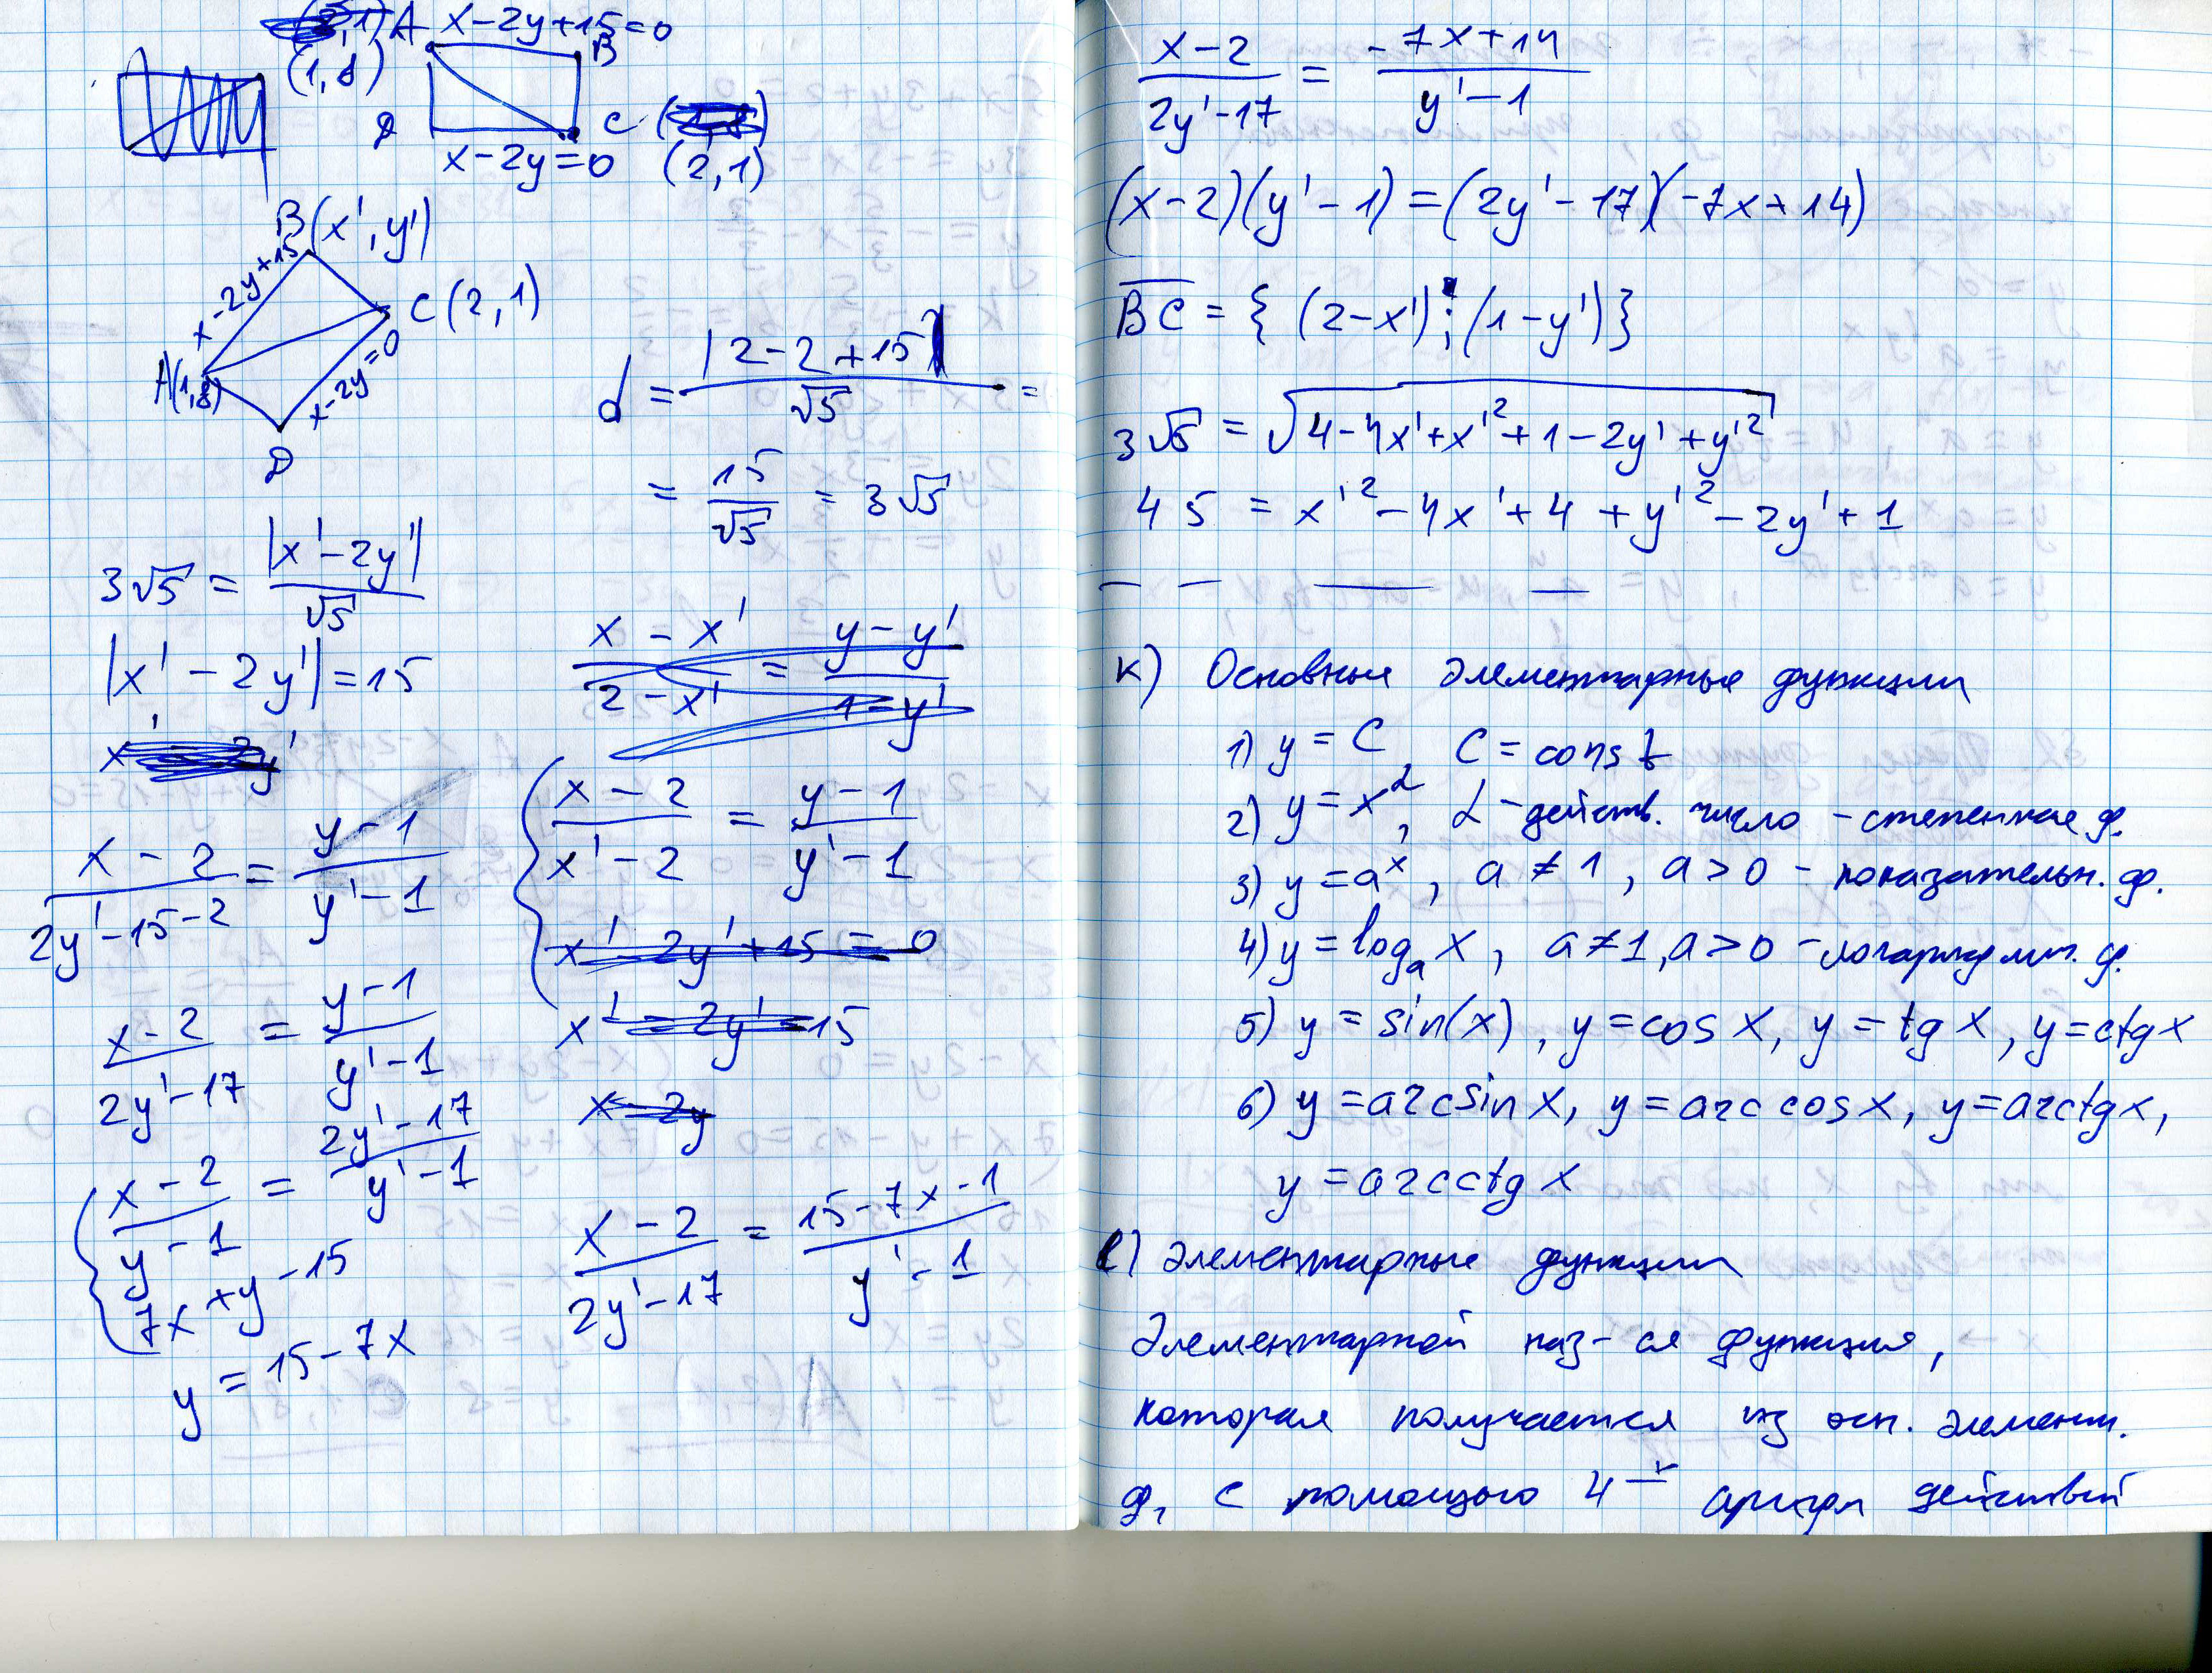 A x-2y+15=0
(1,8)
B
D
C
x-2y=0
(2,1)
B(x',y')
x-2y+15
C(2,1)
A(1,8)
x-2y=0
D
d = |2-2+15|/√5 =
= 15/√5 = 3√5
3√5 = |x'-2y'|/√5
|x'-2y'|=15
(x-2)/(2y'-15-2) = (y-1)/(y'-1)
(x-2)/(2y'-17) = (y-1)/(y'-1)
{ (x-2)/(y-1) = (2y'-17)/(y'-1)
7x+y-15
y=15-7x
(x-x')/(2-x') = (y-y')/(1-y')
{ (x-2)/(x'-2) = (y-1)/(y'-1)
x'-2y'+15=0
x'=2y'-15
x-2y
(x-2)/(2y'-17) = (15-7x-1)/(y'-1)
(x-2)/(2y'-17) = (-7x+14)/(y'-1)
(x-2)(y'-1)=(2y'-17)(-7x+14)
BC = { (2-x');(1-y')}
3√5 = √(4-4x'+x'²+1-2y'+y'²)
45 = x'²-4x'+4+y'²-2y'+1
к) Основные элементарные функции
1) y=C, C=const
2) y=x^α, α-действ. число - степенная ф.
3) y=aˣ, a≠1, a>0 - показательн. ф.
4) y=logₐx, a≠1, a>0 - логарифмич. ф.
5) y=sin(x), y=cosx, y=tgx, y=ctgx
6) y=arcsinx, y=arccosx, y=arctgx,
y=arcctgx
l) Элементарные функции
Элементарной наз-ся функция,
которая получается из осн. элемент.
ф, с помощью 4-х арифм действий